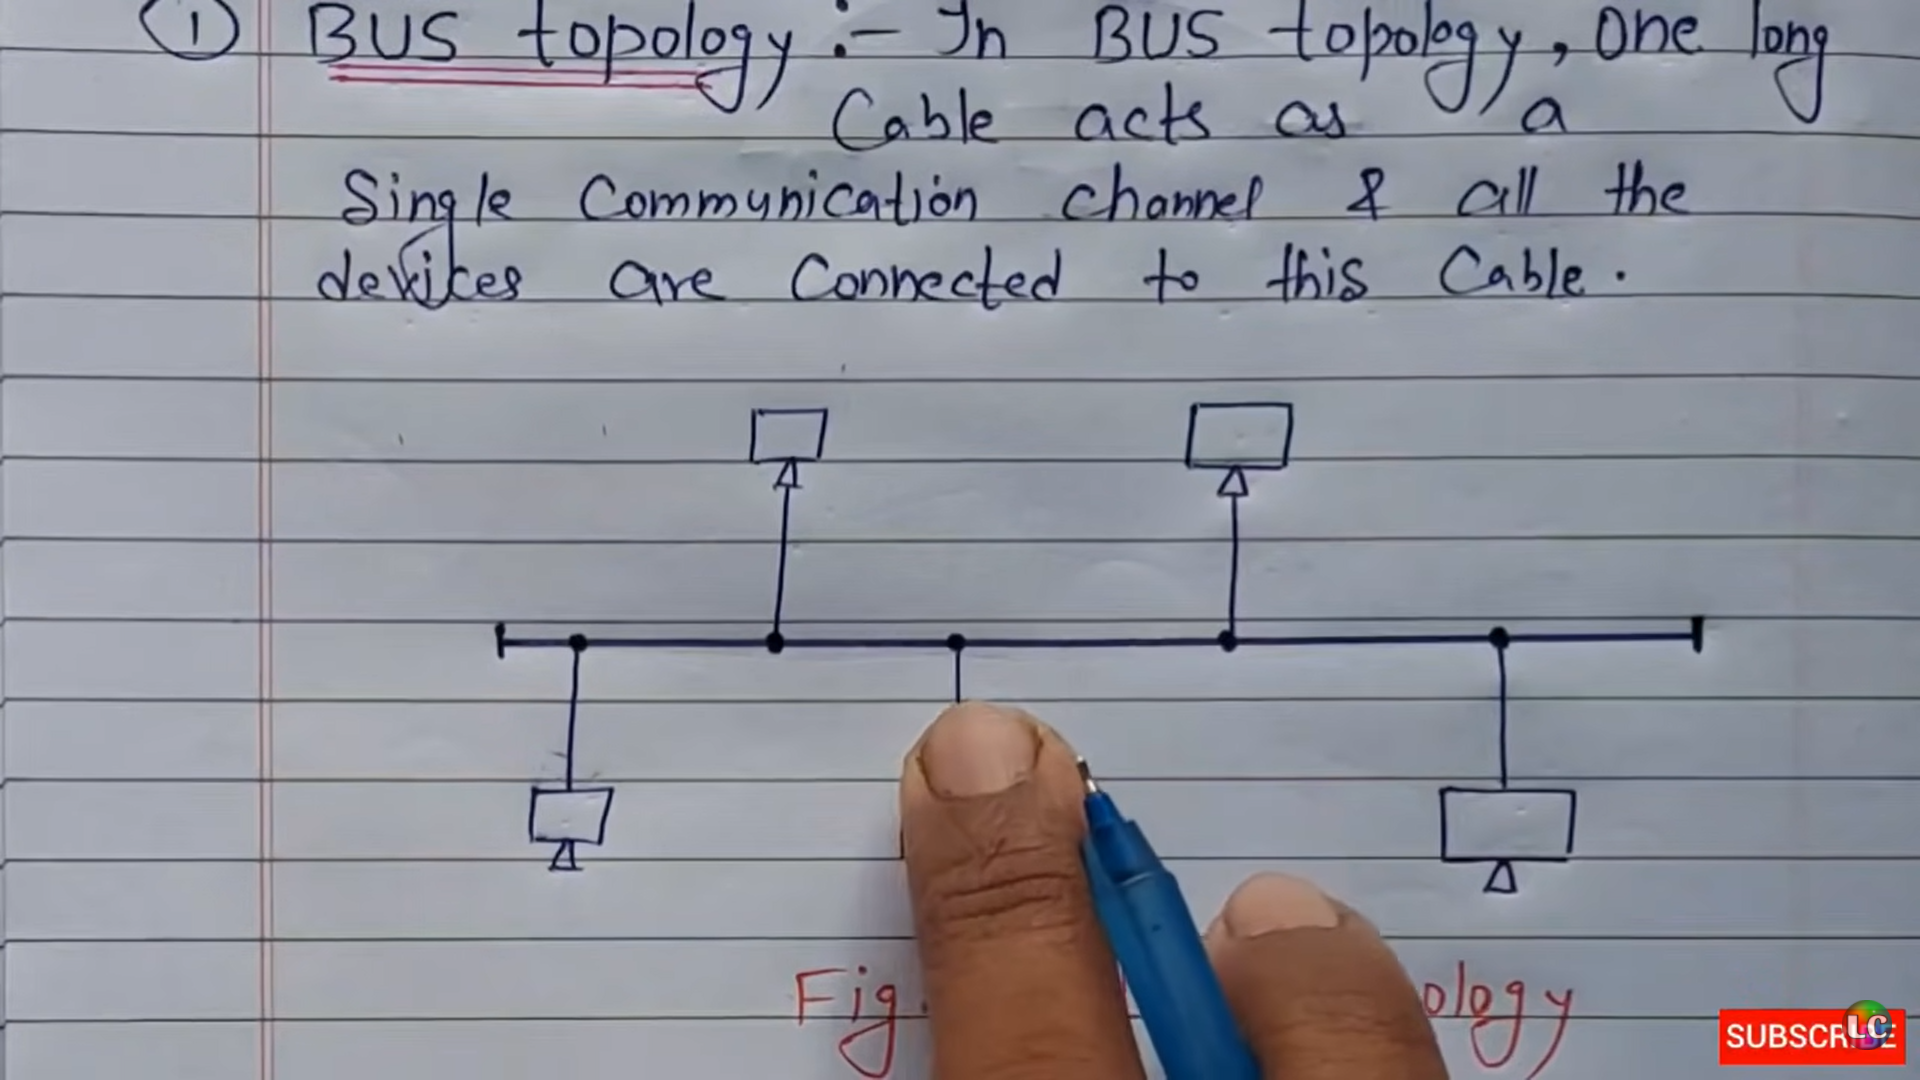 ① BUS topology :- In BUS topology, One long
Cable acts as a
Single Communication channel & all the
devices are Connected to this Cable.
Fig. ology
SUBSCRIBE
LC